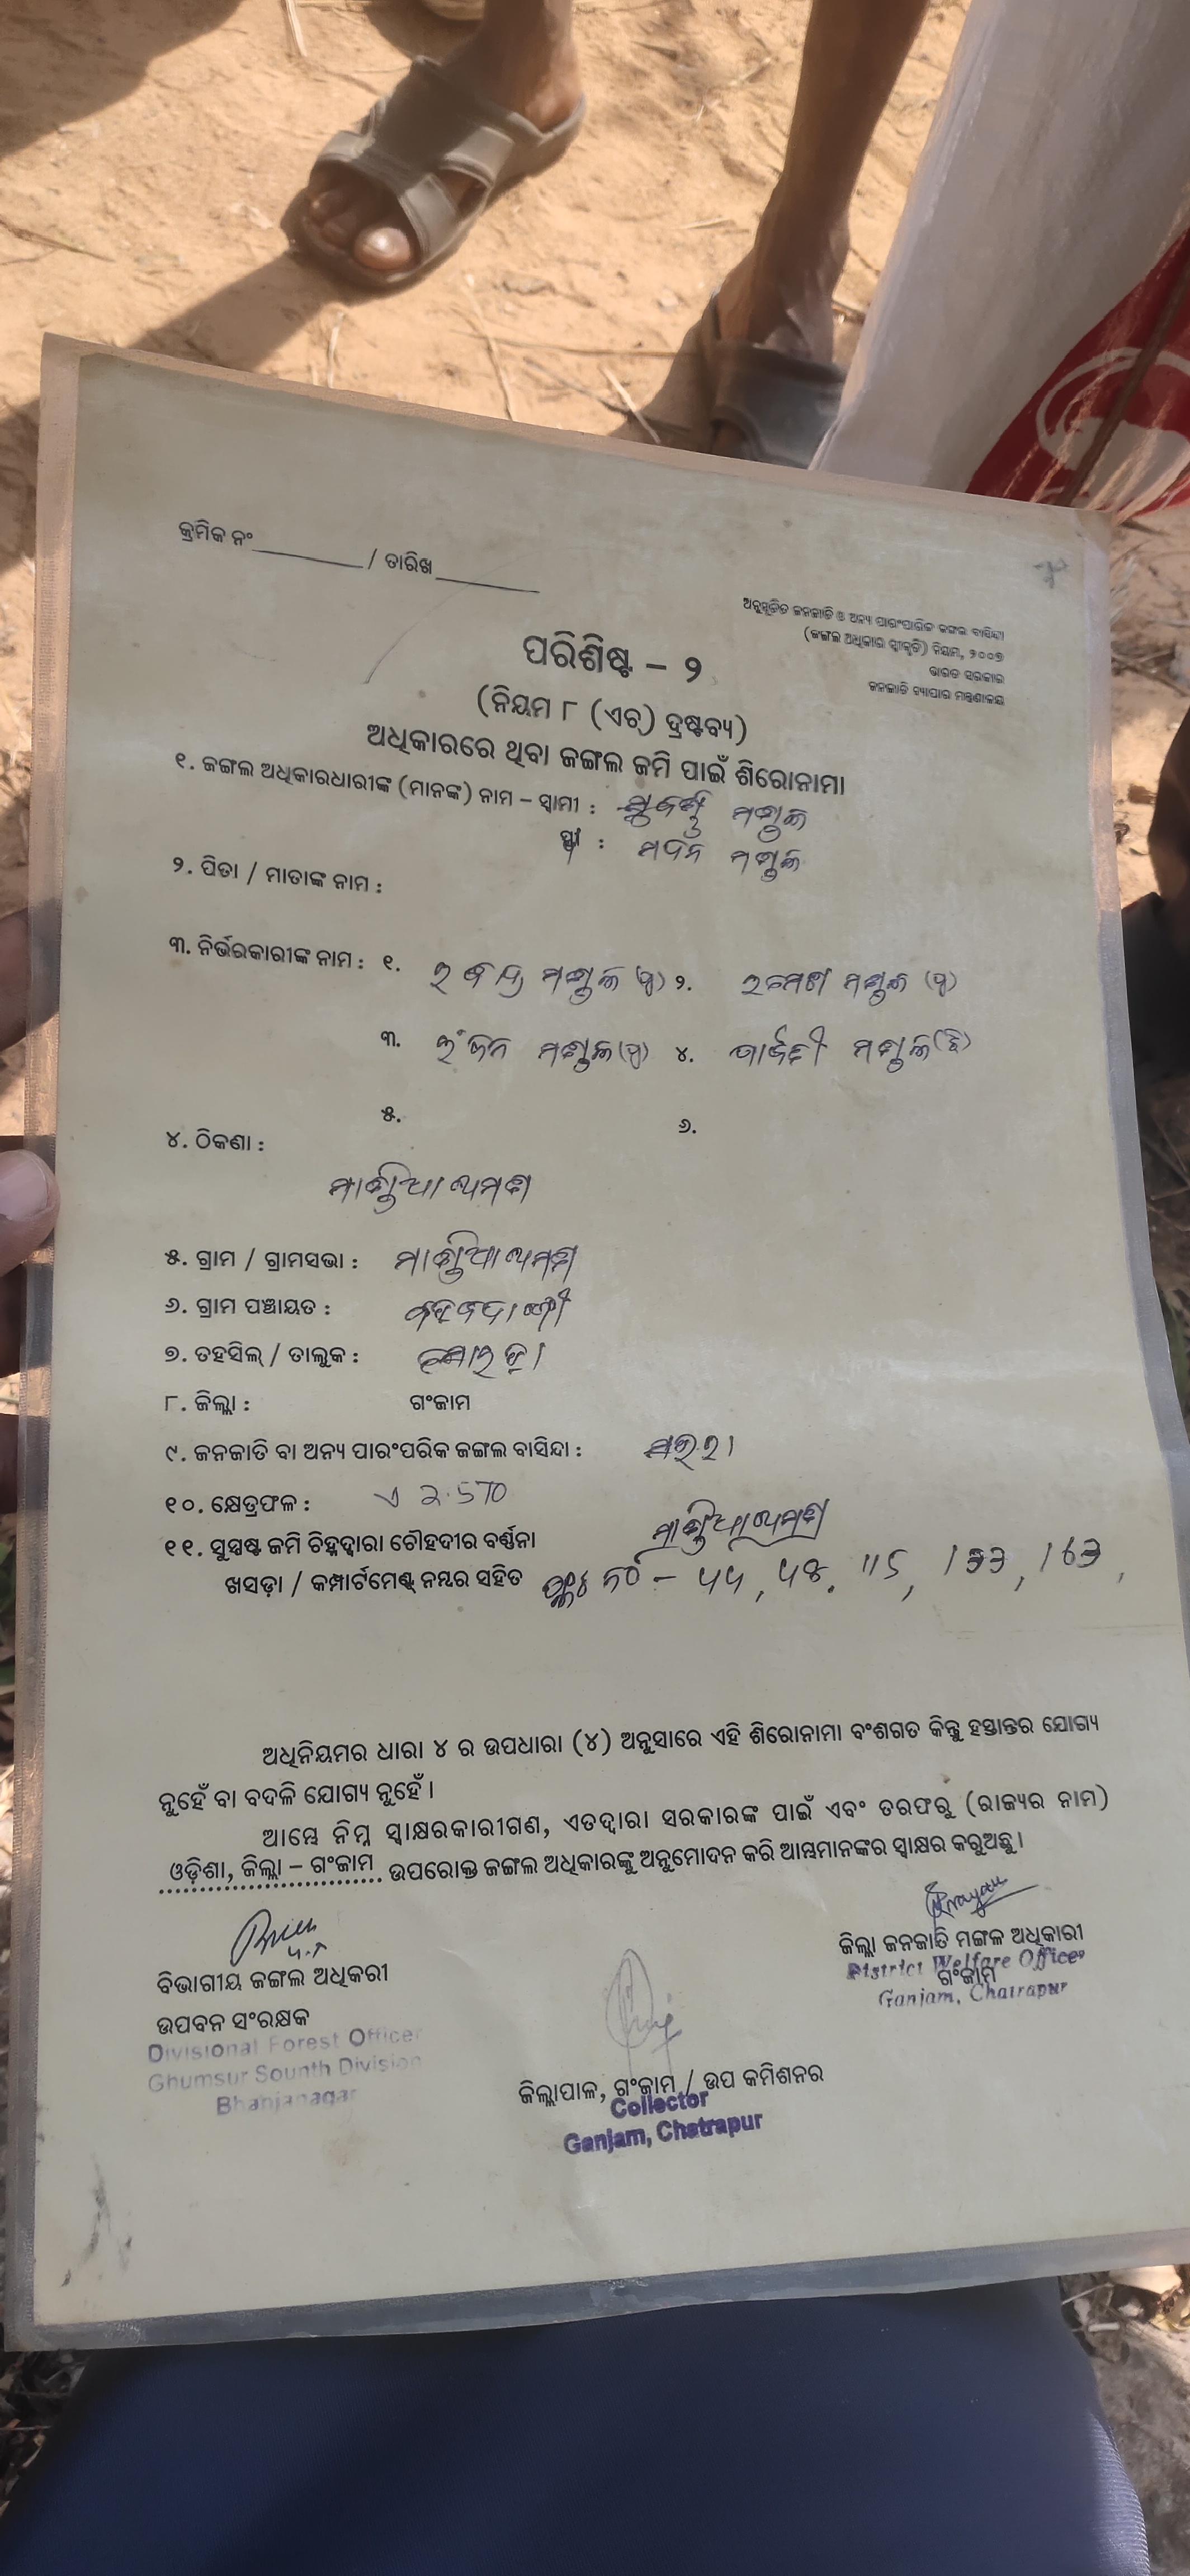 କ୍ରମିକ ନଂ / ତାରିଖ
ଅନୁସୂଚିତ ଜନଜାତି ଓ ଅନ୍ୟ ପାରଂପାରିକ ଜଙ୍ଗଲ ବାସିନ୍ଦା
(ଜଙ୍ଗଲ ଅଧିକାର ସ୍ୱୀକୃତି) ନିୟମ, ୨୦୦୭
ଭାରତ ସରକାର
ଜନଜାତି ବ୍ୟାପାର ମନ୍ତ୍ରଣାଳୟ
ପରିଶିଷ୍ଟ – ୨
(ନିୟମ ୮ (ଏଚ୍) ଦ୍ରଷ୍ଟବ୍ୟ)
ଅଧିକାରରେ ଥିବା ଜଙ୍ଗଲ ଜମି ପାଇଁ ଶିରୋନାମା
୧. ଜଙ୍ଗଲ ଅଧିକାରଧାରୀଙ୍କ (ମାନଙ୍କ) ନାମ – ସ୍ୱାମୀ : ମଣ୍ଡଳ
ସ୍ତ୍ରୀ : ମଦନ ମଣ୍ଡଳ
୨. ପିତା / ମାତାଙ୍କ ନାମ :
୩. ନିର୍ଭରକାରୀଙ୍କ ନାମ : ୧. ମଣ୍ଡଳ (ପୁ) ୨. ରମେଶ ମଣ୍ଡଳ (ପୁ)
୩. ରଂଜନ ମଣ୍ଡଳ (ପୁ) ୪. ମଣ୍ଡଳ (ଝି)
୫. ୬.
୪. ଠିକଣା :
୫. ଗ୍ରାମ / ଗ୍ରାମସଭା :
୬. ଗ୍ରାମ ପଞ୍ଚାୟତ :
୭. ତହସିଲ୍ / ତାଲୁକ : ସୋରଡ଼ା
୮. ଜିଲ୍ଲା : ଗଂଜାମ
୯. ଜନଜାତି ବା ଅନ୍ୟ ପାରଂପରିକ ଜଙ୍ଗଲ ବାସିନ୍ଦା :
୧୦. କ୍ଷେତ୍ରଫଳ : ଏ 2.570
୧୧. ସୁସ୍ପଷ୍ଟ ଜମି ଚିହ୍ନଦ୍ୱାରା ଚୌହଦୀର ବର୍ଣ୍ଣନା
ଖସଡ଼ା / କମ୍ପାର୍ଟମେଣ୍ଟ୍ ନମ୍ବର ସହିତ ନଂ – 115, 133, 163,
ଅଧିନିୟମର ଧାରା ୪ ର ଉପଧାରା (୪) ଅନୁସାରେ ଏହି ଶିରୋନାମା ବଂଶଗତ କିନ୍ତୁ ହସ୍ତାନ୍ତର ଯୋଗ୍ୟ
ନୁହେଁ ବା ବଦଳି ଯୋଗ୍ୟ ନୁହେଁ ।
ଆମ୍ଭେ ନିମ୍ନ ସ୍ୱାକ୍ଷରକାରୀଗଣ, ଏତଦ୍ୱାରା ସରକାରଙ୍କ ପାଇଁ ଏବଂ ତରଫରୁ (ରାଜ୍ୟର ନାମ)
ଓଡ଼ିଶା, ଜିଲ୍ଲା – ଗଂଜାମ ଉପରୋକ୍ତ ଜଙ୍ଗଲ ଅଧିକାରଙ୍କୁ ଅନୁମୋଦନ କରି ଆମ୍ଭମାନଙ୍କର ସ୍ୱାକ୍ଷର କରୁଅଛୁ ।
ଜିଲ୍ଲା ଜନଜାତି ମଙ୍ଗଳ ଅଧିକାରୀ
ଗଂଜାମ
District Welfare Officer
Ganjam, Chatrapur
ବିଭାଗୀୟ ଜଙ୍ଗଲ ଅଧିକରୀ
ଉପବନ ସଂରକ୍ଷକ
Divisional Forest Officer
Ghumsur Sounth Division
Bhanjanagar
ଜିଲ୍ଲାପାଳ, ଗଂଜାମ / ଉପ କମିଶନର
Collector
Ganjam, Chatrapur